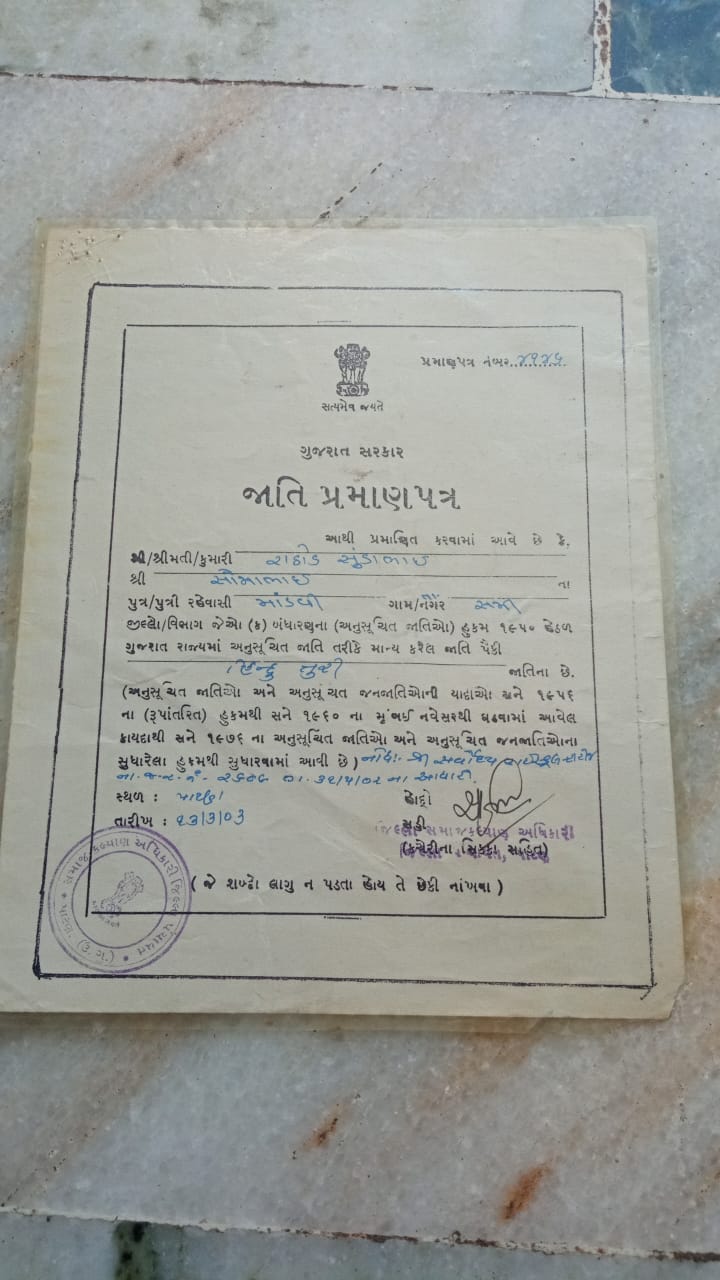 પ્રમાણપત્ર નંબર ૪૧૪૬
સત્યમેવ જયતે
ગુજરાત સરકાર
જાતિ પ્રમાણપત્ર
આથી પ્રમાણિત કરવામાં આવે છે કે,
શ્રી/શ્રીમતી/કુમારી રાઠોડ સુંડાભાઇ
શ્રી સોમાભાઇ ના
પુત્ર/પુત્રી રહેવાસી માંડવી ગામ/નગર સમી
જીલ્લો/વિભાગ જેઓ (ક) બંધારણના (અનુસૂચિત જાતિઓ) હુકમ ૧૯૫૦ હેઠળ
ગુજરાત રાજ્યમાં અનુસૂચિત જાતિ તરીકે માન્ય કરેલ જાતિ પૈકી
હિન્દુ તુરી જાતિના છે.
(અનુસૂચિત જાતિઓ અને અનુસૂચિત જનજાતિઓની યાદીઓ અને ૧૯૫૬
ના (રૂપાંતરિત) હુકમથી સને ૧૯૬૦ ના મુંબઈ નવેસરથી ઘડવામાં આવેલ
કાયદાથી સને ૧૯૭૬ ના અનુસૂચિત જાતિઓ અને અનુસૂચિત જનજાતિઓના
સુધારેલા હુકમથી સુધારવામાં આવી છે) નોંધઃ- શ્રી સર્વોદય
ના જ.ર.નં.- તા. ના આધારે.
સ્થળ : પાટણ હોદ્દો
તારીખ : ૧૩/૩/૦૩ સહી
જિલ્લા સમાજકલ્યાણ અધિકારી
(કચેરીના સિક્કા સહિત)
જિલ્લા પંચાયત, પાટણ
સમાજ કલ્યાણ અધિકારી જિલ્લા પંચાયત પાટણ (ઉ.ગુ.)
( જે શબ્દો લાગુ ન પડતા હોય તે છેકી નાંખવા )